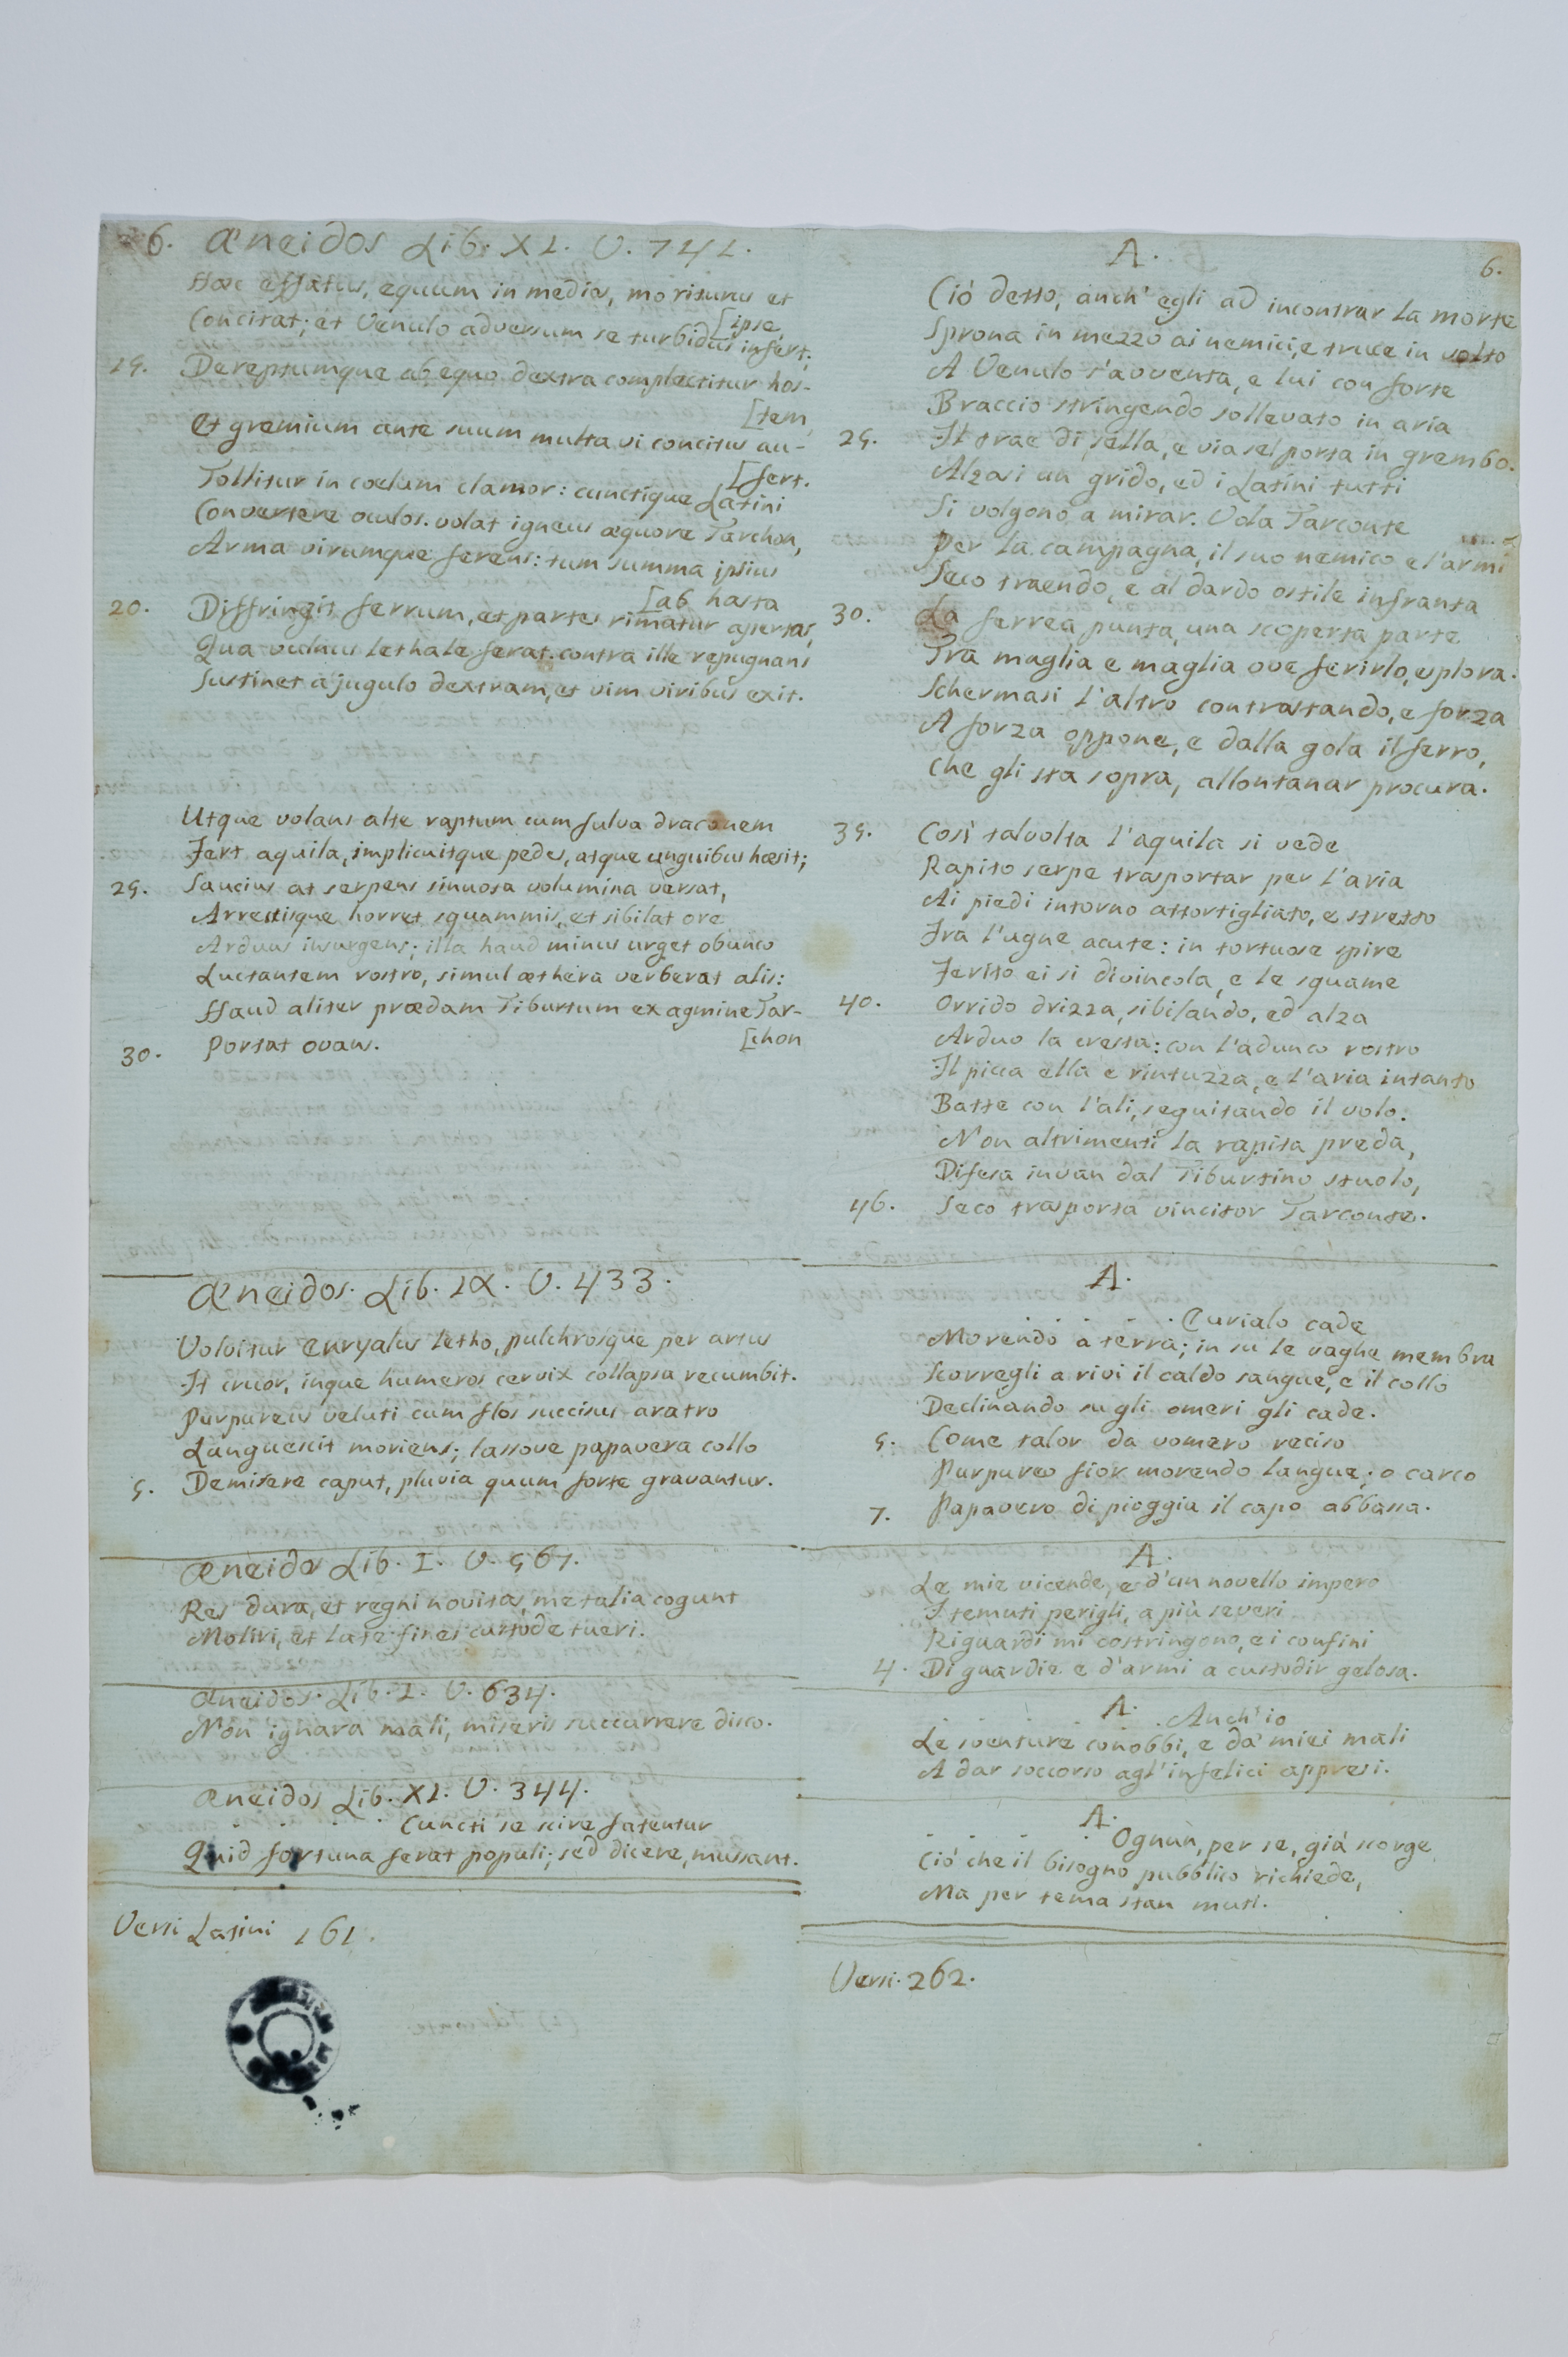 6. Æneidos Lib. XI. V. 741.
Hæc effatus, equum in medios, moriturus et
[ipse,
Concitat; et Venulo adversum se turbidus infert;
15. Dereptumque ab equo dextra complectitur hos-
[tem,
Et gremium ante suum multa vi concitus au-
[fert.
Tollitur in coelum clamor: cunctique Latini
Convertere oculos. volat igneus æquore Tarchon,
Arma virumque ferens: tum summa ipsius
[ab hasta
20. Diffringit ferrum, et partes rimatur apertas,
Qua vulnus lethale ferat. contra ille repugnans
Sustinet a jugulo dextram, et vim viribus exit.
Utque volans alte raptum cum fulva draconem
Fert aquila, implicuitque pedes, atque unguibus hæsit;
25. Saucius at serpens sinuosa volumina versat,
Arrectisque horret squammis, et sibilat ore
Arduus insurgens; illa haud minus urget obunco
Luctantem rostro, simul æthera verberat alis:
Haud aliter prædam Tiburtum ex agmine Tar-
[chon
30. Portat ovans.
Æneidos. Lib. IX. V. 433.
Volvitur Euryalus letho, pulchrosque per artus
It cruor, inque humeros cervix collapsa recumbit.
Purpureus veluti cum flos succisus aratro
Languescit moriens; lassove papavera collo
5. Demisere caput, pluvia quum forte gravantur.
Æneidos Lib. I. V. 567.
Res dura, et regni novitas, me talia cogunt
Moliri, et late fines custode tueri.
Æneidos. Lib. I. V. 634.
Non ignara mali, miseris succurrere disco.
Æneidos Lib. XI. V. 344.
. . . . Cuncti se scire fatentur
Quid fortuna ferat populi; sed dicere, mussant.
Versi Latini 161.
A. 6.
Ciò detto, anch' egli ad incontrar la morte
Sprona in mezzo ai nemici, e truce in volto
A Venulo s'avventa, e lui con forte
Braccio stringendo sollevato in aria
25. Il trae di sella, e via sel porta in grembo.
Alzasi un grido, ed i Latini tutti
Si volgono a mirar. Vola Tarconte
Per la campagna, il suo nemico e l'armi
Seco traendo, e al dardo ostile infranta
30. La ferrea punta, una scoperta parte
Tra maglia e maglia ove ferirlo, esplora.
Schermasi l'altro contrastando, e forza
A forza oppone, e dalla gola il ferro,
Che gli sta sopra, allontanar procura.
35. Così talvolta l'aquila si vede
Rapito serpe trasportar per l'aria
Ai piedi intorno attortigliato, e stretto
Fra l'ugne acute: in tortuose spire
Ferito ei si divincola, e le squame
40. Orrido drizza, sibilando, ed alza
Arduo la cresta: con l'adunco rostro
Il picca ella e rintuzza, e l'aria intanto
Batte con l'ali, seguitando il volo.
Non altrimenti la rapita preda,
Difesa invan dal Tiburtino stuolo,
46. Seco trasporta vincitor Tarconte.
A.
. . . . Eurialo cade
Morendo a terra; in su le vaghe membra
Scorregli a rivi il caldo sangue, e il collo
Declinando su gli omeri gli cade.
5. Come talor da vomero reciso
Purpureo fior morendo langue; o carco
7. Papavero di pioggia il capo abbassa.
A.
Le mie vicende, e d'un novello impero
I temuti perigli, a più severi
Riguardi mi costringono, e i confini
4. Di guardie e d'armi a custodir gelosa.
A.
. . . . Anch' io
Le sventure conobbi, e da' miei mali
A dar soccorso agl'infelici appresi.
A.
. . . . Ognun, per se, già scorge
Ciò che il bisogno pubblico richiede,
Ma per tema stan muti.
Versi. 262.